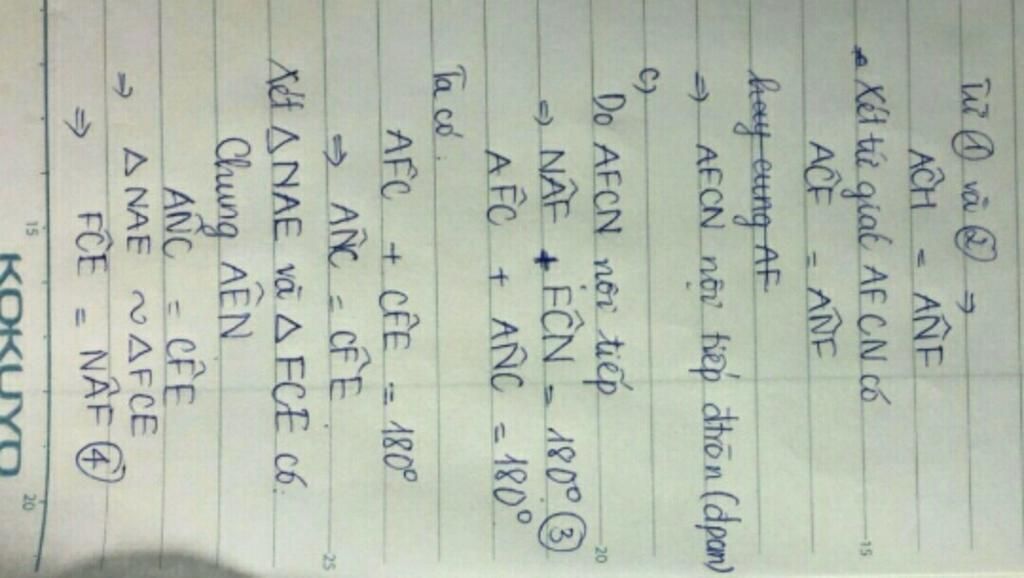 Từ ① và ② ⇒
AĈH = AN̂F
* Xét tứ giác AFCN có
AĈF = AN̂F
hay cung AF
⇒ AFCN nội tiếp đtròn (đpcm)
c,
Do AFCN nội tiếp
⇒ NÂF + FĈN = 180° ③
AF̂C + AN̂C = 180°
Ta có.
AF̂C + CF̂E = 180°
⇒ AN̂C = CF̂E
Xét △NAE và △FCE có.
Chung AÊN
AN̂C = CF̂E
⇒ △NAE ~ △FCE
⇒ FĈE = NÂF ④
15
20
25
KOKUYO
15
20